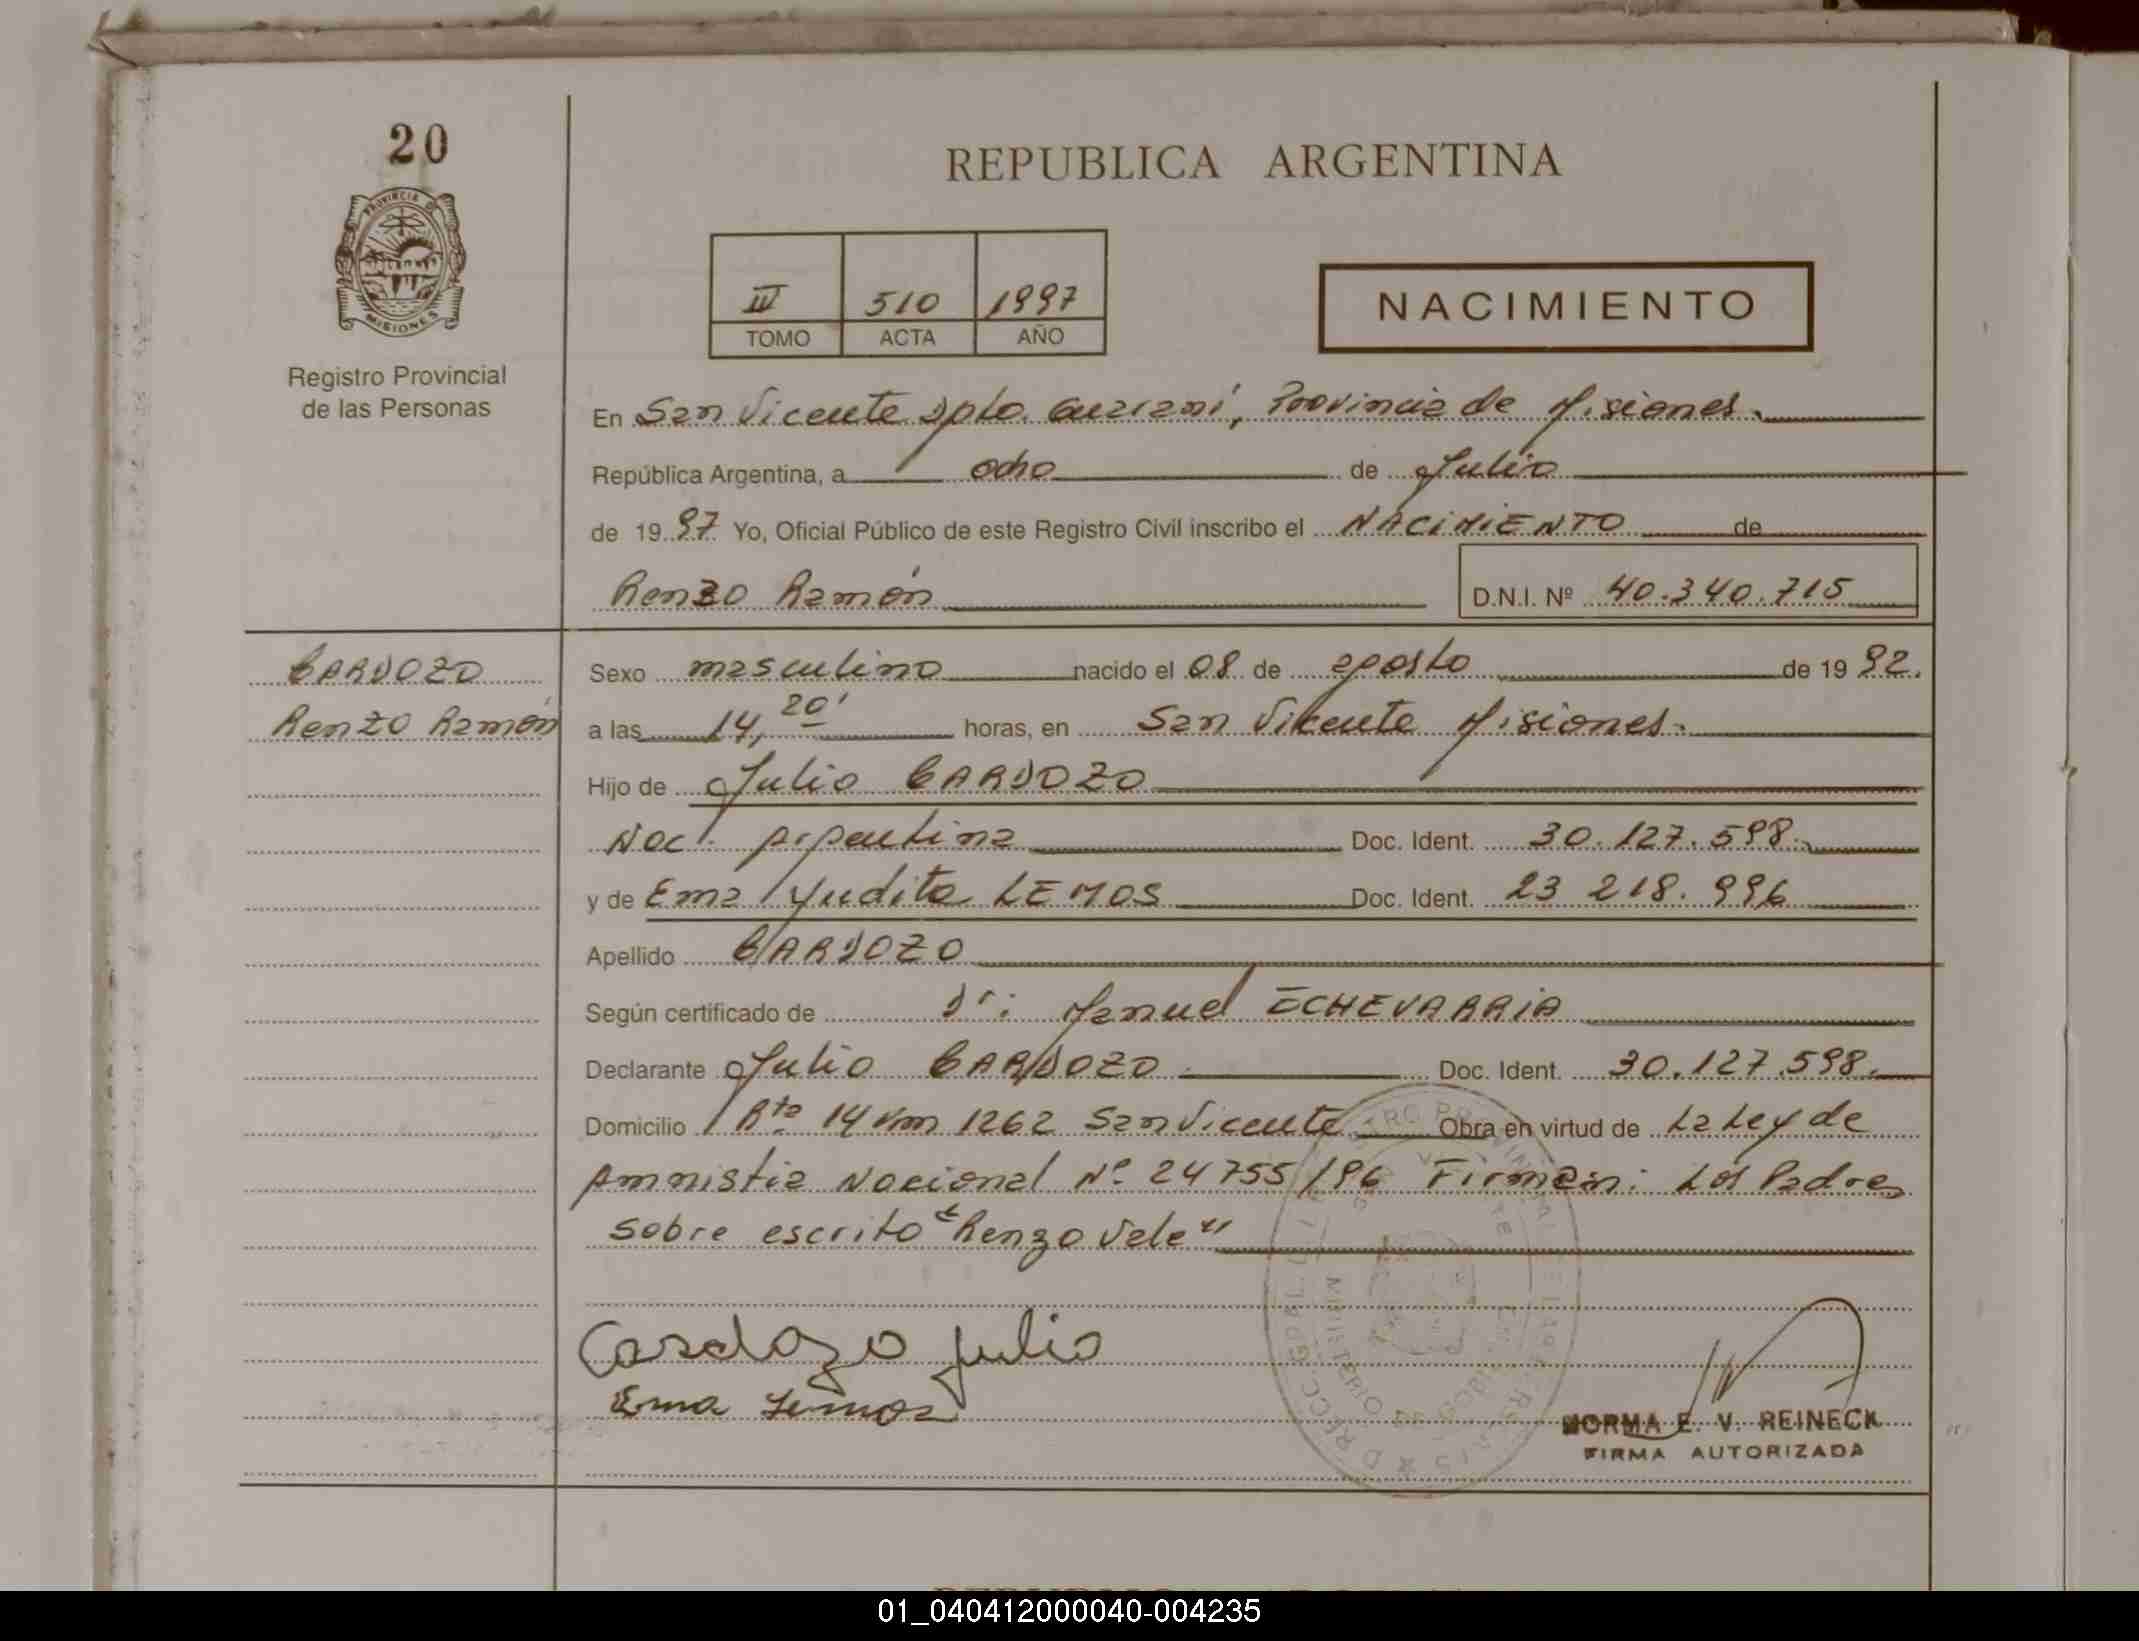 20
REPUBLICA ARGENTINA
PROVINCIA DE
MISIONES
III 510 1997
TOMO ACTA AÑO
NACIMIENTO
Registro Provincial
de las Personas
En San Vicente Dpto. Guaraní, Provincia de Misiones.
República Argentina, a ocho de Julio
de 1997 Yo, Oficial Público de este Registro Civil inscribo el NACIMIENTO de
Renzo Ramón D.N.I. Nº 40.340.715
CARDOZO
Renzo Ramón
Sexo masculino nacido el 08 de agosto de 1992.
a las 14,20' horas, en San Vicente Misiones.
Hijo de Julio CARDOZO
Nac. Argentina Doc. Ident. 30.127.598.
y de Ema Yudita LEMOS Doc. Ident. 23 218.996
Apellido CARDOZO
Según certificado de Dr: Manuel ECHEVARRIA
Declarante Julio CARDOZO Doc. Ident. 30.127.598.
Domicilio Rta 14 Km 1262 San Vicente Obra en virtud de La Ley de
Amnistia Nacional Nº 24755/96 Firman: Los Padres
sobre escrito "Renzo Vale"
Cardozo Julio
Ema Lemos
NORMA E. V. REINECK
FIRMA AUTORIZADA
01_040412000040-004235